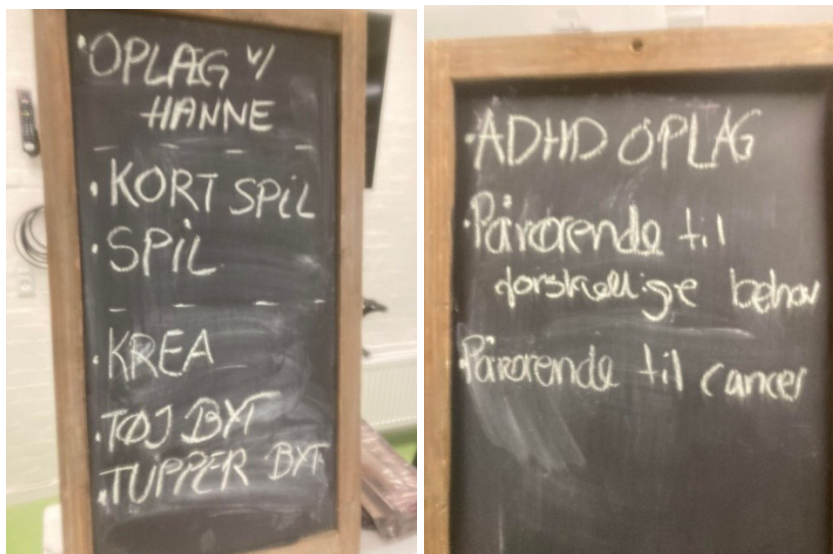 · OPLÆG V/
HANNE
· KORT SPIL
· SPIL
· KREA
· TØJ BYT
· TUPPER BYT
· ADHD OPLÆG
· Pårørende til
forskellige behov
· Pårørende til cancer